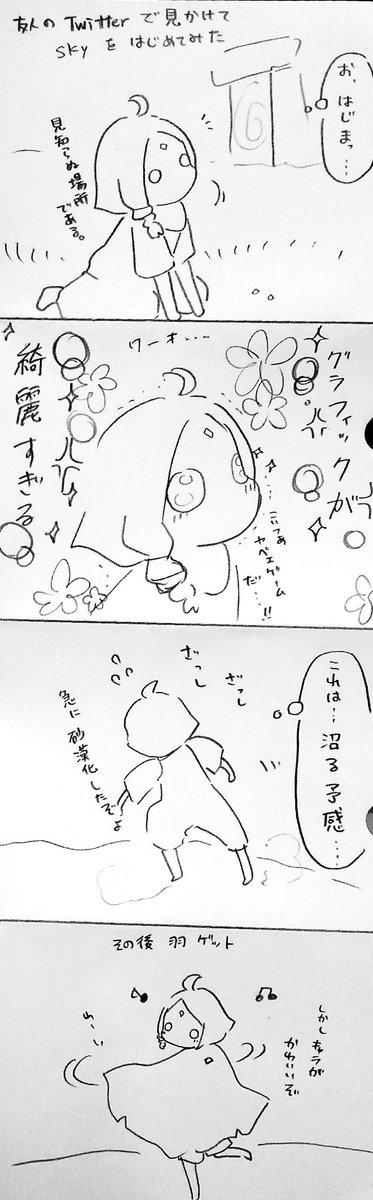 友人の Twitter で見かけて
sky をはじめてみた
お、はじまっ…
見知らぬ場所
である。
グラフィックが
ワーオ…
綺麗すぎる
…こいつぁ
ヤベエゲーム
だ…!!
これは…沼る予感……
ざっし
ざっし
急に砂漠化したぞよ
その後 羽 ゲット
しかしキャラが
かわいいぞ
わーい